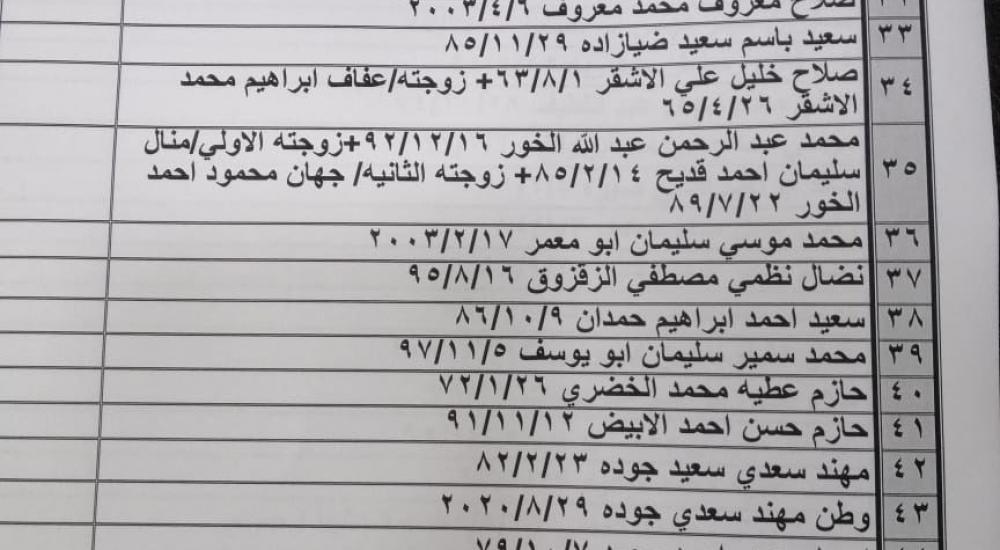 صلاح معروف محمد معروف ٢٠٠٣/٤/٦
٣٣ سعيد باسم سعيد ضيازاده ٨٥/١١/٢٩
٣٤ صلاح خليل علي الاشقر ٦٣/٨/١+ زوجته/عفاف ابراهيم محمد
الاشقر ٦٥/٤/٢٦
٣٥ محمد عبد الرحمن عبد الله الخور ٩٢/١٢/١٦+زوجته الاولي/منال
سليمان احمد قديح ٨٥/٢/١٤+ زوجته الثانيه/ جهان محمود احمد
الخور ٨٩/٧/٢٢
٣٦ محمد موسي سليمان ابو معمر ٢٠٠٣/٢/١٧
٣٧ نضال نظمي مصطفي الزقزوق ٩٥/٨/١٦
٣٨ سعيد احمد ابراهيم حمدان ٨٦/١٠/٩
٣٩ محمد سمير سليمان ابو يوسف ٩٧/١١/٥
٤٠ حازم عطيه محمد الخضري ٧٢/١/٢٦
٤١ حازم حسن احمد الابيض ٩١/١١/١٢
٤٢ مهند سعدي سعيد جوده ٨٢/٢/٢٣
٤٣ وطن مهند سعدي جوده ٢٠٢٠/٨/٢٩
٧٩/١٠/٧